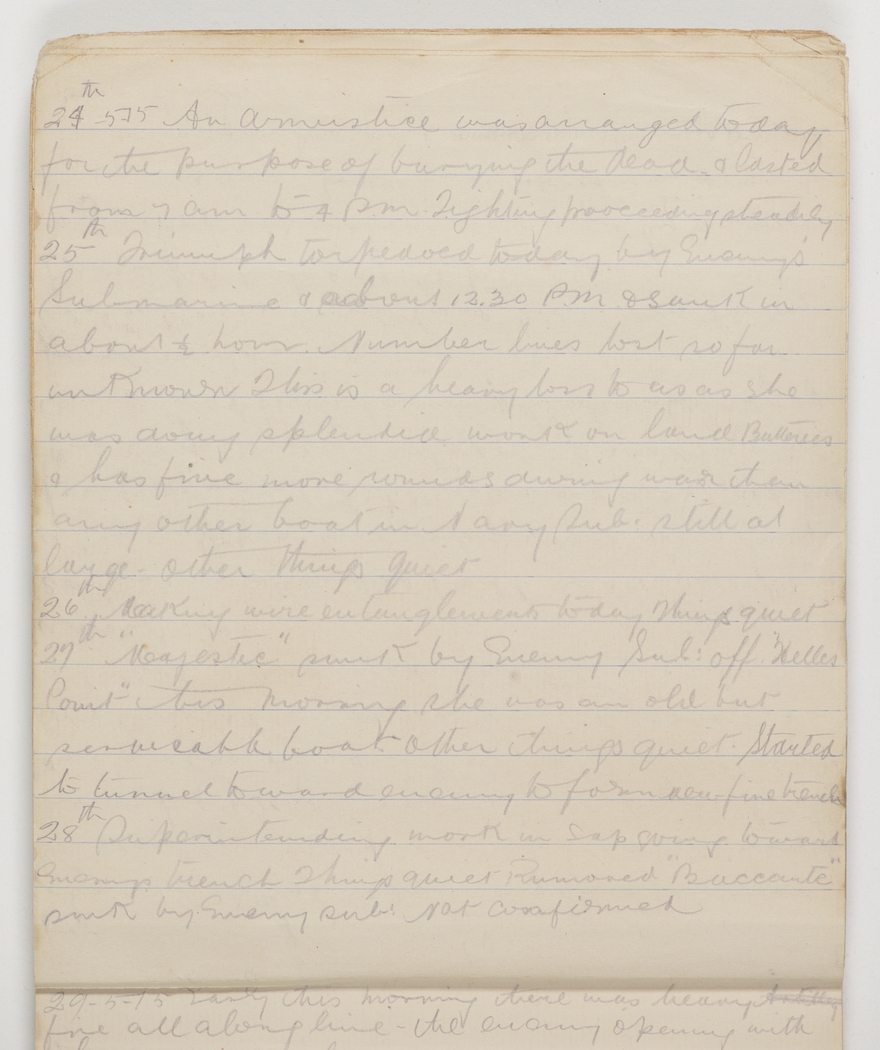 24th-5-15 An armistice was arranged today
for the purpose of burying the dead. & lasted
from 7 am to 4 P.m. Fighting proceeding steadily
25th Triumph torpedoed today by Enemy's
Submarine & about 12.30 P.M. & sank in
about ½ hour. Number lives lost so far
unknown This is a heavy loss to us as she
was doing splendid work on land Batteries
& has fire more rounds during war than
any other boat in Navy Sub: still at
large - other things quiet
26th Making wire entanglements today things quiet
27th "Majestic" sunk by Enemy Sub: off "Helles
Point" this morning she was an old but
serviceable boat - other things quiet. Started
to tunnel toward enemy to form new fire trench
28th Superintending work in sap going toward
Enemys trench Things quiet Rumored "Baccante"
sunk by Enemy sub: Not confirmed
29-5-15 Early this morning there was heavy Artillery
fire all along line - the enemy opening with